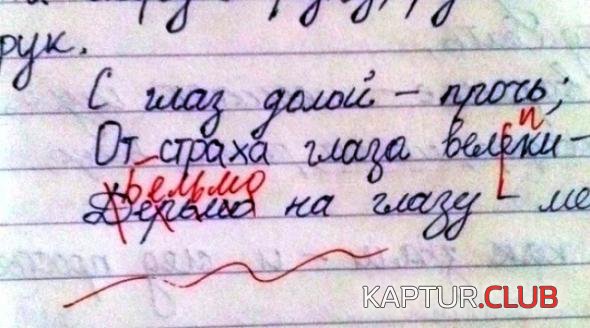 рук.
С глаз долой – прочь;
п
От страха глаза велеки –
бельмо
Дерьмо на глазу – ме
KAPTUR.CLUB